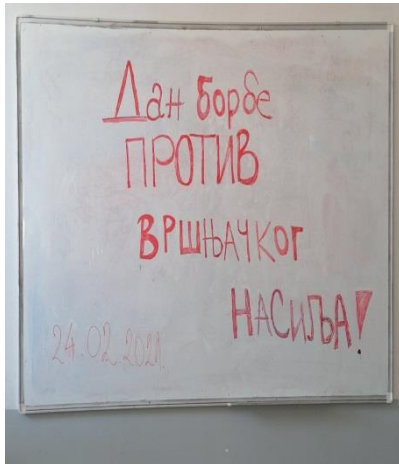 Дан борбе
ПРОТИВ
ВРШЊАЧКОГ
НАСИЉА!
24.02.2021.